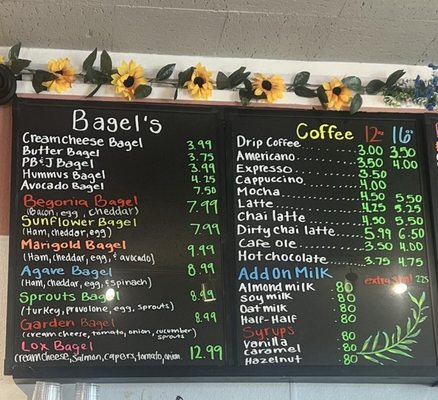 Bagel's
Cream Cheese Bagel 3.99
Butter Bagel 3.75
PB&J Bagel 3.99
Hummus Bagel 4.25
Avocado Bagel 7.50
Begonia Bagel 7.99
(Bacon, egg, cheddar)
Sunflower Bagel 7.99
(Ham, cheddar, egg)
Marigold Bagel 9.99
(Ham, cheddar, egg, & avocado)
Agave Bagel 8.99
(Ham, cheddar, egg, & spinach)
Sprouts Bagel 8.99
(turkey, provolone, egg, sprouts)
Garden Bagel 8.99
(cream cheese, tomato, onion, cucumber
sprouts)
Lox Bagel 12.99
(cream cheese, salmon, capers, tomato, onion)
Coffee 12oz 16oz
Drip Coffee 3.00 3.50
Americano 3.50 4.00
Expresso 3.50
Cappuccino 4.00
Mocha 4.50 5.50
Latte 4.25 5.25
Chai latte 4.50 5.50
Dirty chai latte 5.99 6.50
Cafe ole 3.50 4.00
Hot chocolate 3.75 4.75
Add on Milk
Almond milk .80
soy milk .80
Oat milk .80
Half-Half .80
Syrups
Vanilla .80
caramel .80
Hazelnut .80